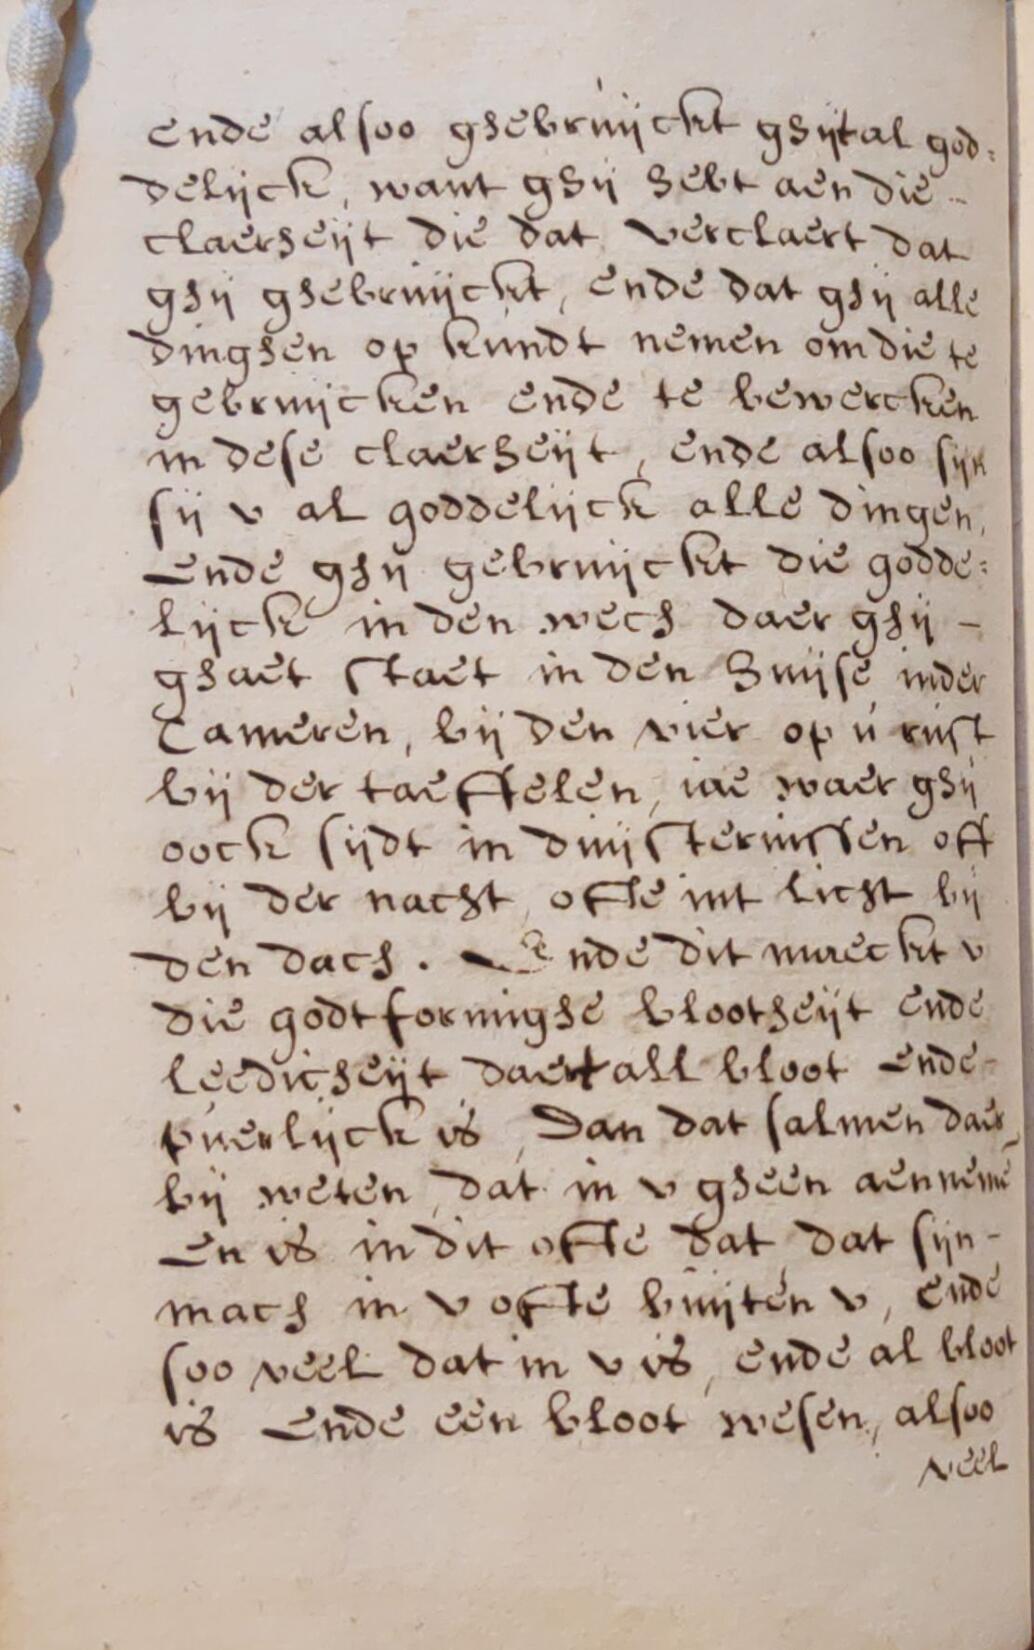 ende alsoo ghebruijckt ghijt al god=
delijck, want ghij hebt aen die -
claerheijt die dat verclaert dat
ghij ghebruijckt, ende dat ghij alle
dinghen op kundt nemen om die te
gebruijcken ende te bewercken
in dese claerheijt, ende alsoo sijn
sij v al goddelijck alle dingen,
Ende ghij gebruijckt die godde=
lijck in den wech daer ghij -
ghaet staet in den huijse inder
Cameren, bij den vier op ú rúst
bij der taeffelen, iae waer ghij
oock sijdt in duijsternissen off
bij der nacht, ofte int licht bij
den dach. Ende dit maeckt v
die godtformighe blootheijt ende
leedicheijt daert all bloot Ende -
puerlijck is, Dan dat salmen daer
bij weten, dat in v gheen aennemē
En is in dit ofte dat, dat sijn -
mach in v ofte buijten v, Ende
soo veel dat in v is, ende al bloot
is Ende een bloot wesen, alsoo
veel